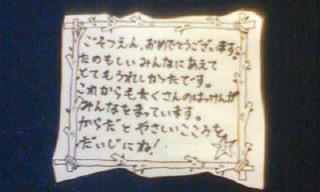 ごそつえん、おめでとうございます。
たのもしい みんなに あえて
とても うれしかったです。
これからも たくさんの はっけんが
みんなを まっています。
からだと やさしい こころを
だいじにね!